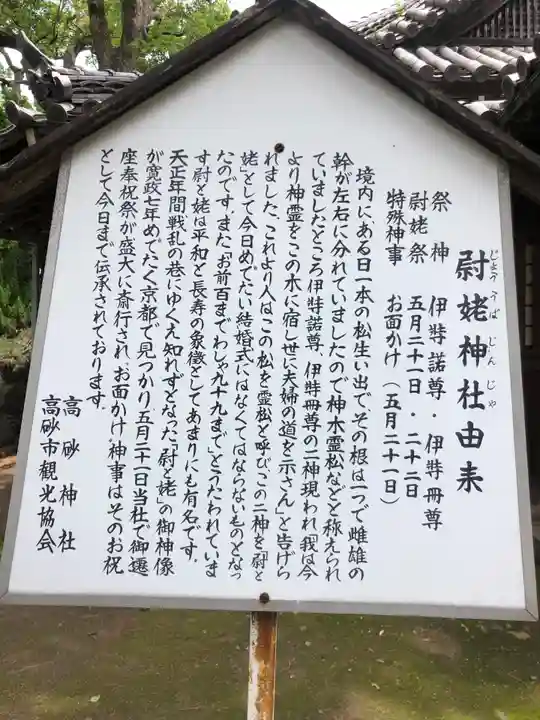 尉姥神社由来
じょううばじんじゃ
祭神 伊弉諾尊・伊弉冊尊
尉姥祭 五月二十一日・二十二日
特殊神事 お面かけ(五月二十一日)
境内にある日一本の松生い出で、その根は一つで雌雄の
幹が左右に分れていましたので神木霊松などと称えられ
ていましたところ伊弉諾尊、伊弉冊尊の二神現われ「我は今
より神霊をこの木に宿し世に夫婦の道を示さん」と告げら
れました、これより人はこの松を霊松と呼び、この二神を「尉と
姥」として今日めでたい結婚式にはなくてはならないものとなっ
たのです、また「お前百までわしゃ九十九まで」とうたわれていま
す尉と姥は平和と長寿の象徴としてあまりにも有名です、
天正年間戦乱の巷にゆくえ知れずとなった「尉と姥」の御神像
が寛政七年めでたく京都で見つかり五月二十一日当社で御遷
座奉祝祭が盛大に斎行され、お面かけ神事はそのお祝
として今日まで伝承されております。
高砂神社
高砂市観光協会